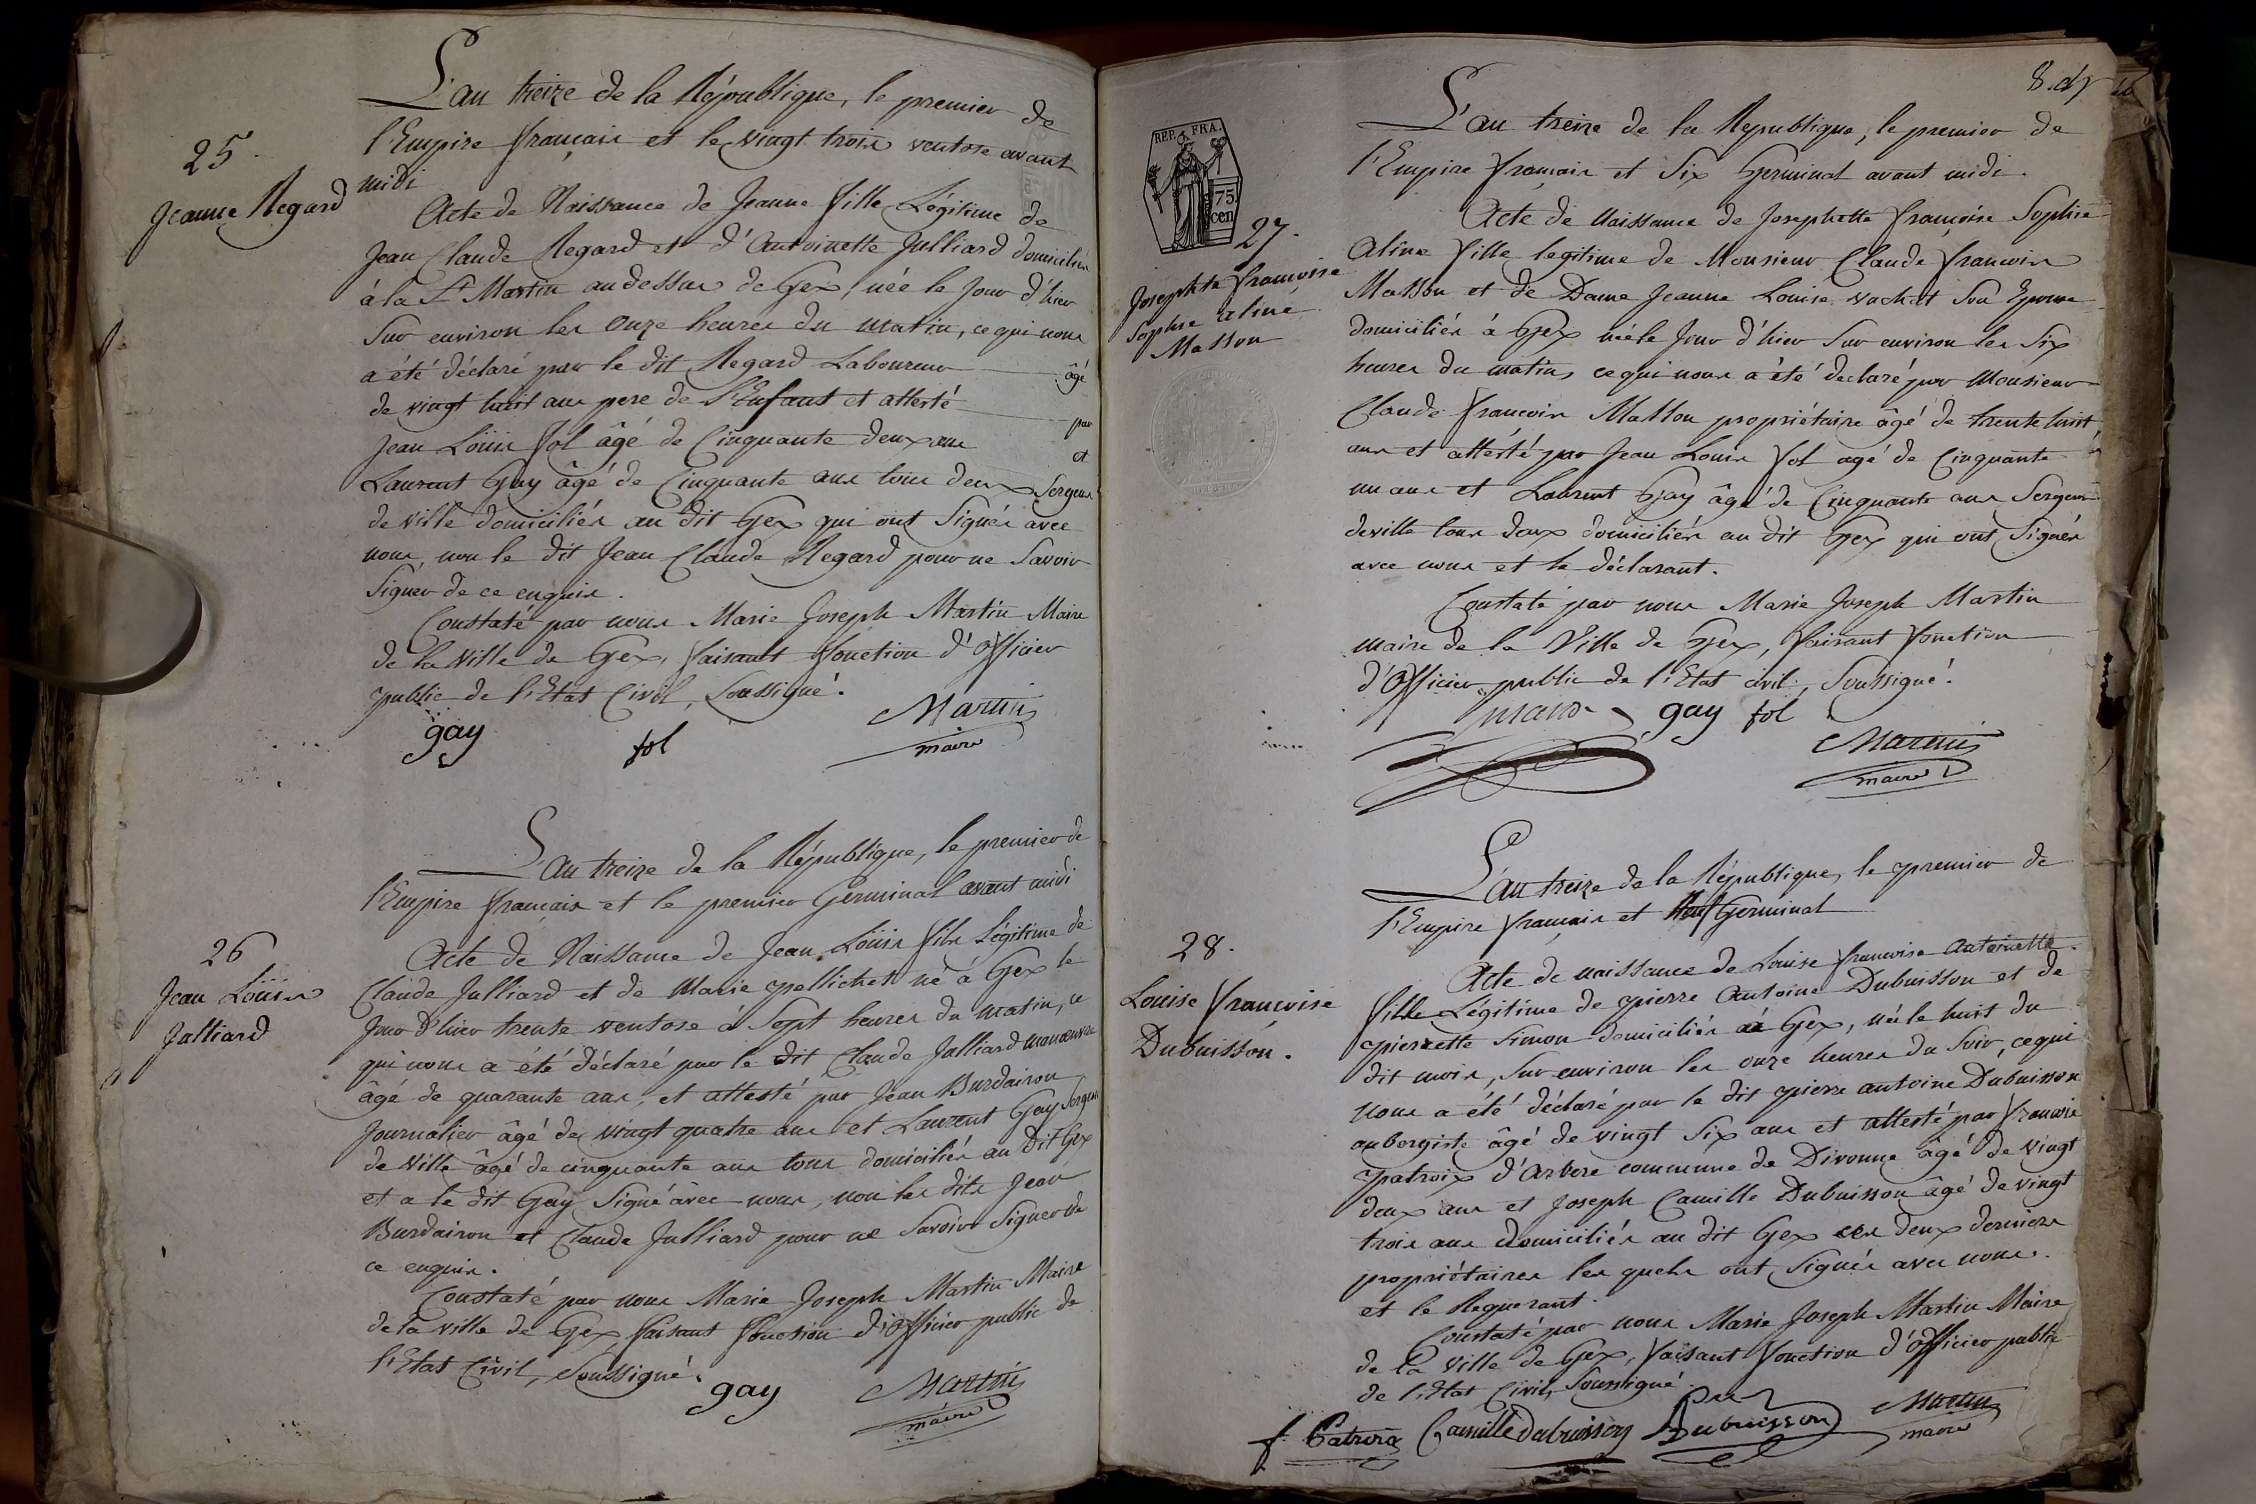 L'an treize de la République, le premier de
l'Empire français et le vingt trois ventose avant
midi
25
Jeanne Regard
Acte de Naissance de Jeanne fille Légitime de
Jean Claude Regard et d'Antoinette Julliard domiciliés
à la St Martin au dessus de Gex, née le Jour d'hier
Sur environ les Onze heures du matin, ce qui nous
a été déclaré par le dit Regard Laboureur âgé
de vingt huit ans pere de l'Enfant et attesté par
Jean Loüis fol âgé de Cinquante deux ans et
Laurent Gay âgé de Cinquante ans tous deux Sergens
de ville domiciliés au dit Gex qui ont Signés avec
nous, non le dit Jean Claude Regard pour ne Savoir
Signer de ce enquis.
Constaté par nous Marie Joseph Martin Maire
de la Ville de Gex, faisant fonction d'Officier
public de l'Etat Civil, Soussigné.
gay fol Martin
maire
L'an treize de la République, le premier de
l'Empire français et le premier Germinal avant midi
26
Jean Loüis
Julliard
Acte de Naissance de Jean Loüis fils Légitime de
Claude Julliard et de Marie pellichet né à Gex le
Jour d'hier trente ventose à Sept heures du matin, ce
qui nous a été déclaré par le dit Claude Julliard manoeuvre
âgé de quarante ans, et attesté par Jean Burdairon
Journalier âgé de vingt quatre ans et Laurent Gay Sergent
de Ville âgé de cinquante ans tous domiciliés au Dit Gex
et a le dit Gay Signé avec nous, non les dits Jean
Burdairon et Claude Julliard pour ne Savoir Signer de
ce enquis.
Constaté par nous Marie Joseph Martin Maire
de la ville de Gex, faisant fonction d'Officier public de
l'Etat Civil, Soussigné.
gay Martin
maire
L'an treize de la République, le premier de
l'Empire français et Six Germinal avant midi.
REP. FRA.
75
cen
27.
Josephte françoise
Sophie aline
Masson
Acte de Naissance de Josephette françoise Sophie
Aline fille legitime de Monsieur Claude françois
Masson et de Dame Jeanne Louise vachat Son Epouse
domiciliés à Gex née le Jour d'hier Sur environ les Six
heures du matin, ce qui nous a été déclaré par Monsieur
Claude françois Masson propriétaire âgé de trente huit
ans et attesté par Jean Louis fol agé de Cinquante
un ans et Laurent Gay âgé de Cinquante ans Sergens
de ville tous deux domiciliés au dit Gex qui ont Signés
avec nous et le déclarant.
Constaté par nous Marie Joseph Martin
maire de la Ville de Gex, faisant fonction
d'Officier public de l'Etat civil, Soussigné.
gay fol
Martin
maire
L'an treize de la République, le premier de
l'Empire français et Neuf Germinal
28.
Louise françoise
Dubuisson.
Acte de naissance de Louise françoise Antoinette
fille Légitime de pierre Antoine Dubuisson et de
pierrette Simon domiciliés à Gex, née le huit du
dit mois, Sur environ les onze heures du Soir, ce qui
nous a été déclaré par le dit pierre antoine Dubuisson
aubergiste âgé de vingt Six ans et attesté par françois
patroix d'Arbere commune de Divonne âgé de vingt
deux ans et Joseph Camille Dubuisson âgé de vingt
trois ans domiciliés au dit Gex ces deux derniers
propriétaires les quels ont Signés avec nous.
et le Requerant.
Constaté par nous Marie Joseph Martin Maire
de la ville de Gex, faisant fonction d'Officier public
de l'Etat Civil, Soussigné.
Camille dubuisson Dubuisson Martin
maire